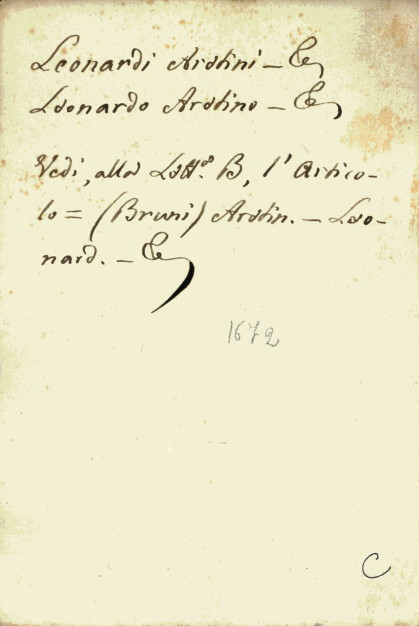 Leonardi Aretini - &c,
Leonardo Aretino - &c,
Vedi, alla Letta. B, l'Artico-
lo = (Bruni) Aretin. - Leo-
nard. - &c
1672
C